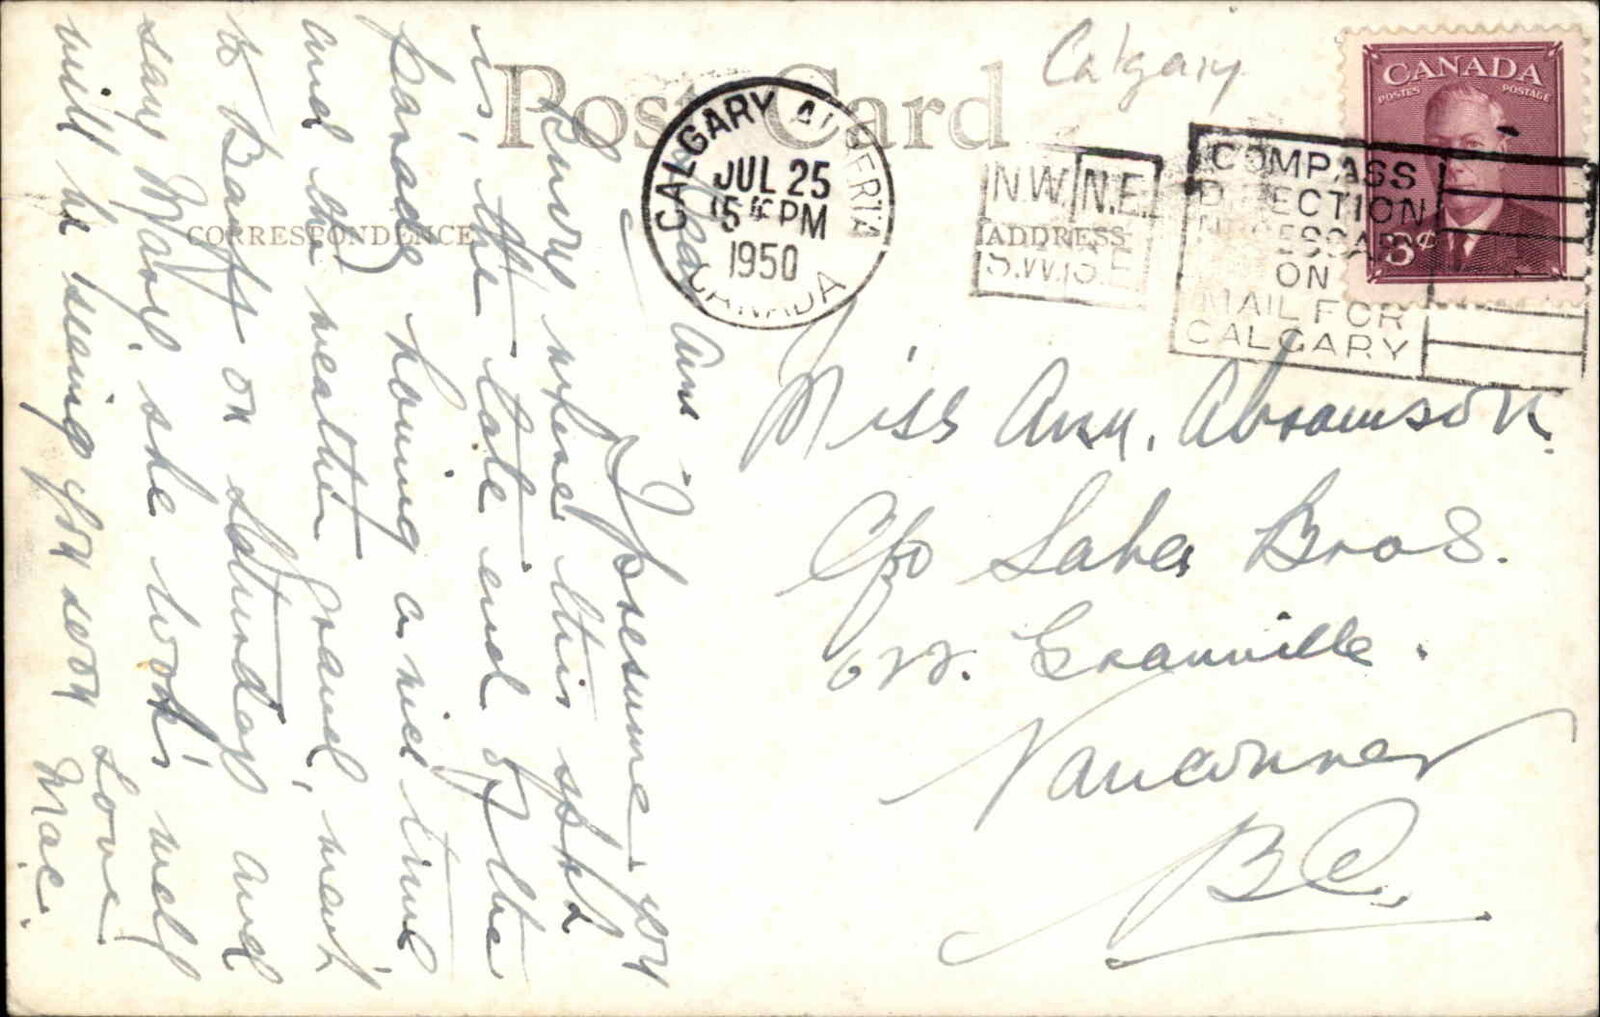 Post Card
Calgary
CANADA
POSTES POSTAGE
3¢
CALGARY ALBERTA
JUL 25
15 PM
1950
CANADA
N.W. N.E.
ADDRESS
S.W. S.E.
COMPASS
DIRECTION
NECESSARY
ON
MAIL FOR
CALGARY
CORRESPONDENCE
Dear Ann -
I presume you
know where this spot
is, the tate end of the
parade, having a nice time
and the weather grand, went
to Banff on Saturday and
saw Mary, she look's well
will be seeing you soon
Love
Mac.
Miss Ann. Abramson.
C/o Saba Bros.
622. Granville.
Vancouver
B.C.